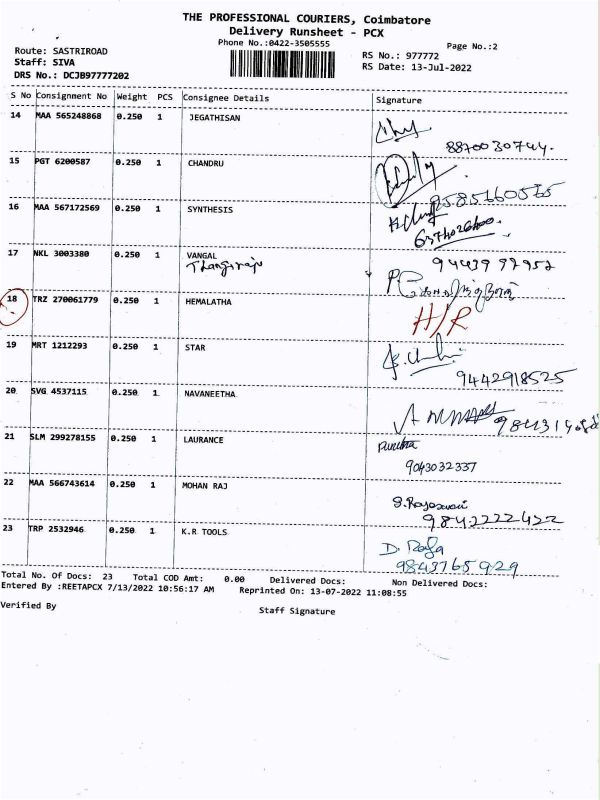 THE PROFESSIONAL COURIERS, Coimbatore
Delivery Runsheet - PCX
Phone No.:0422-3505555
Page No.:2
Route: SASTRIROAD
RS No.: 977772
Staff: SIVA
RS Date: 13-Jul-2022
DRS No.: DCJB97777202
S No Consignment No Weight PCS Consignee Details Signature
14 MAA 565248868 0.250 1 JEGATHISAN
8870030744.
15 PGT 6200587 0.250 1 CHANDRU
9585660565
16 MAA 567172569 0.250 1 SYNTHESIS
17 NKL 3003380 0.250 1 VANGAL
Thangaraju
9443997952
18 TRZ 270061779 0.250 1 HEMALATHA
H/R
19 MRT 1212293 0.250 1 STAR
9442918525
20 SVG 4537115 0.250 1 NAVANEETHA
21 SLM 299278155 0.250 1 LAURANCE
9043032337
22 MAA 566743614 0.250 1 MOHAN RAJ
S. Rajeswari
9842222422
23 TRP 2532946 0.250 1 K.R TOOLS
D. Raja
9843765929
Total No. Of Docs: 23 Total COD Amt: 0.00 Delivered Docs: Non Delivered Docs:
Entered By :REETAPCX 7/13/2022 10:56:17 AM Reprinted On: 13-07-2022 11:08:55
Verified By
Staff Signature